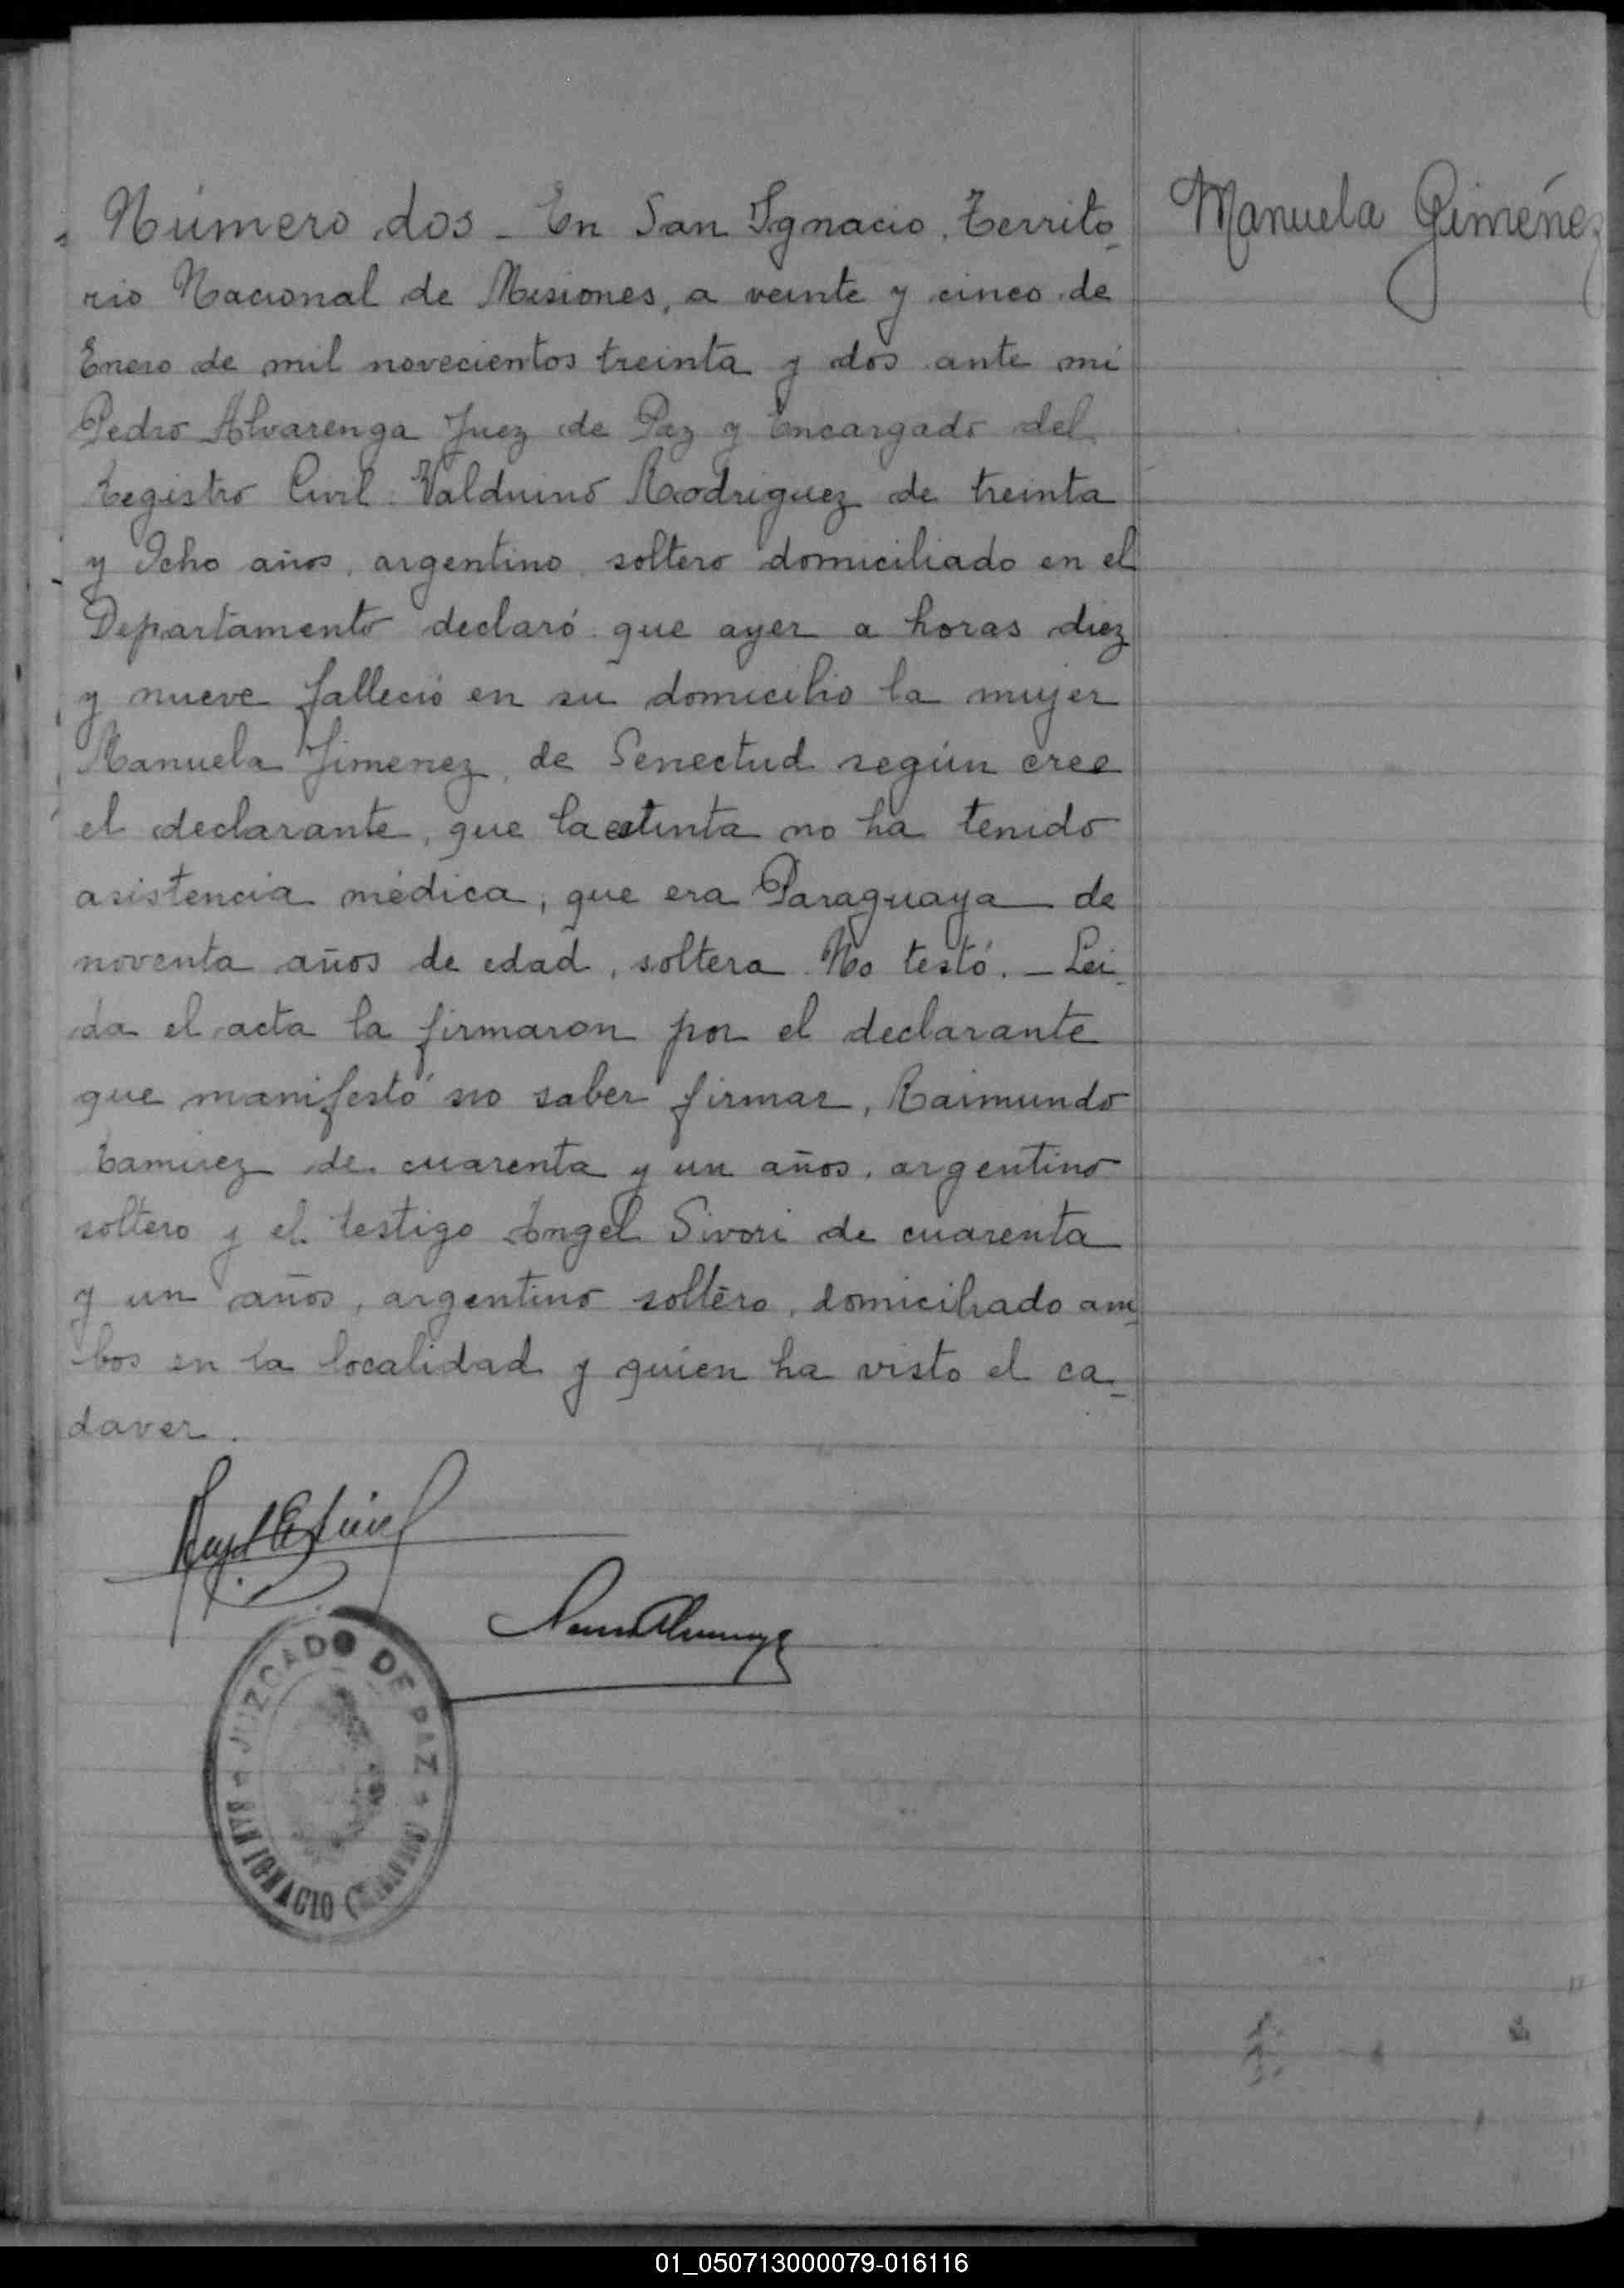 Número dos - En San Ignacio, Territo-
rio Nacional de Misiones, a veinte y cinco de
Enero de mil novecientos treinta y dos ante mi
Pedro Alvarenga Juez de Paz y Encargado del
Registro Civil Valduino Rodriguez de treinta
y Ocho años, argentino soltero domiciliado en el
Departamento declaró que ayer a horas diez
y nueve falleció en su domicilio la mujer
Manuela Jimenez, de Senectud según cree
el declarante, que la extinta no ha tenido
asistencia médica, que era Paraguaya de
noventa años de edad, soltera No testó. - Lei-
da el acta la firmaron por el declarante
que manifestó no saber firmar, Raimundo
Ramirez de cuarenta y un años, argentino
soltero y el testigo Angel Sivori de cuarenta
y un años, argentino soltero, domiciliado am-
bos en la localidad y quien ha visto el ca-
daver.
Manuela Giménez
JUZGADO DE PAZ
SAN IGNACIO
01_050713000079-016116